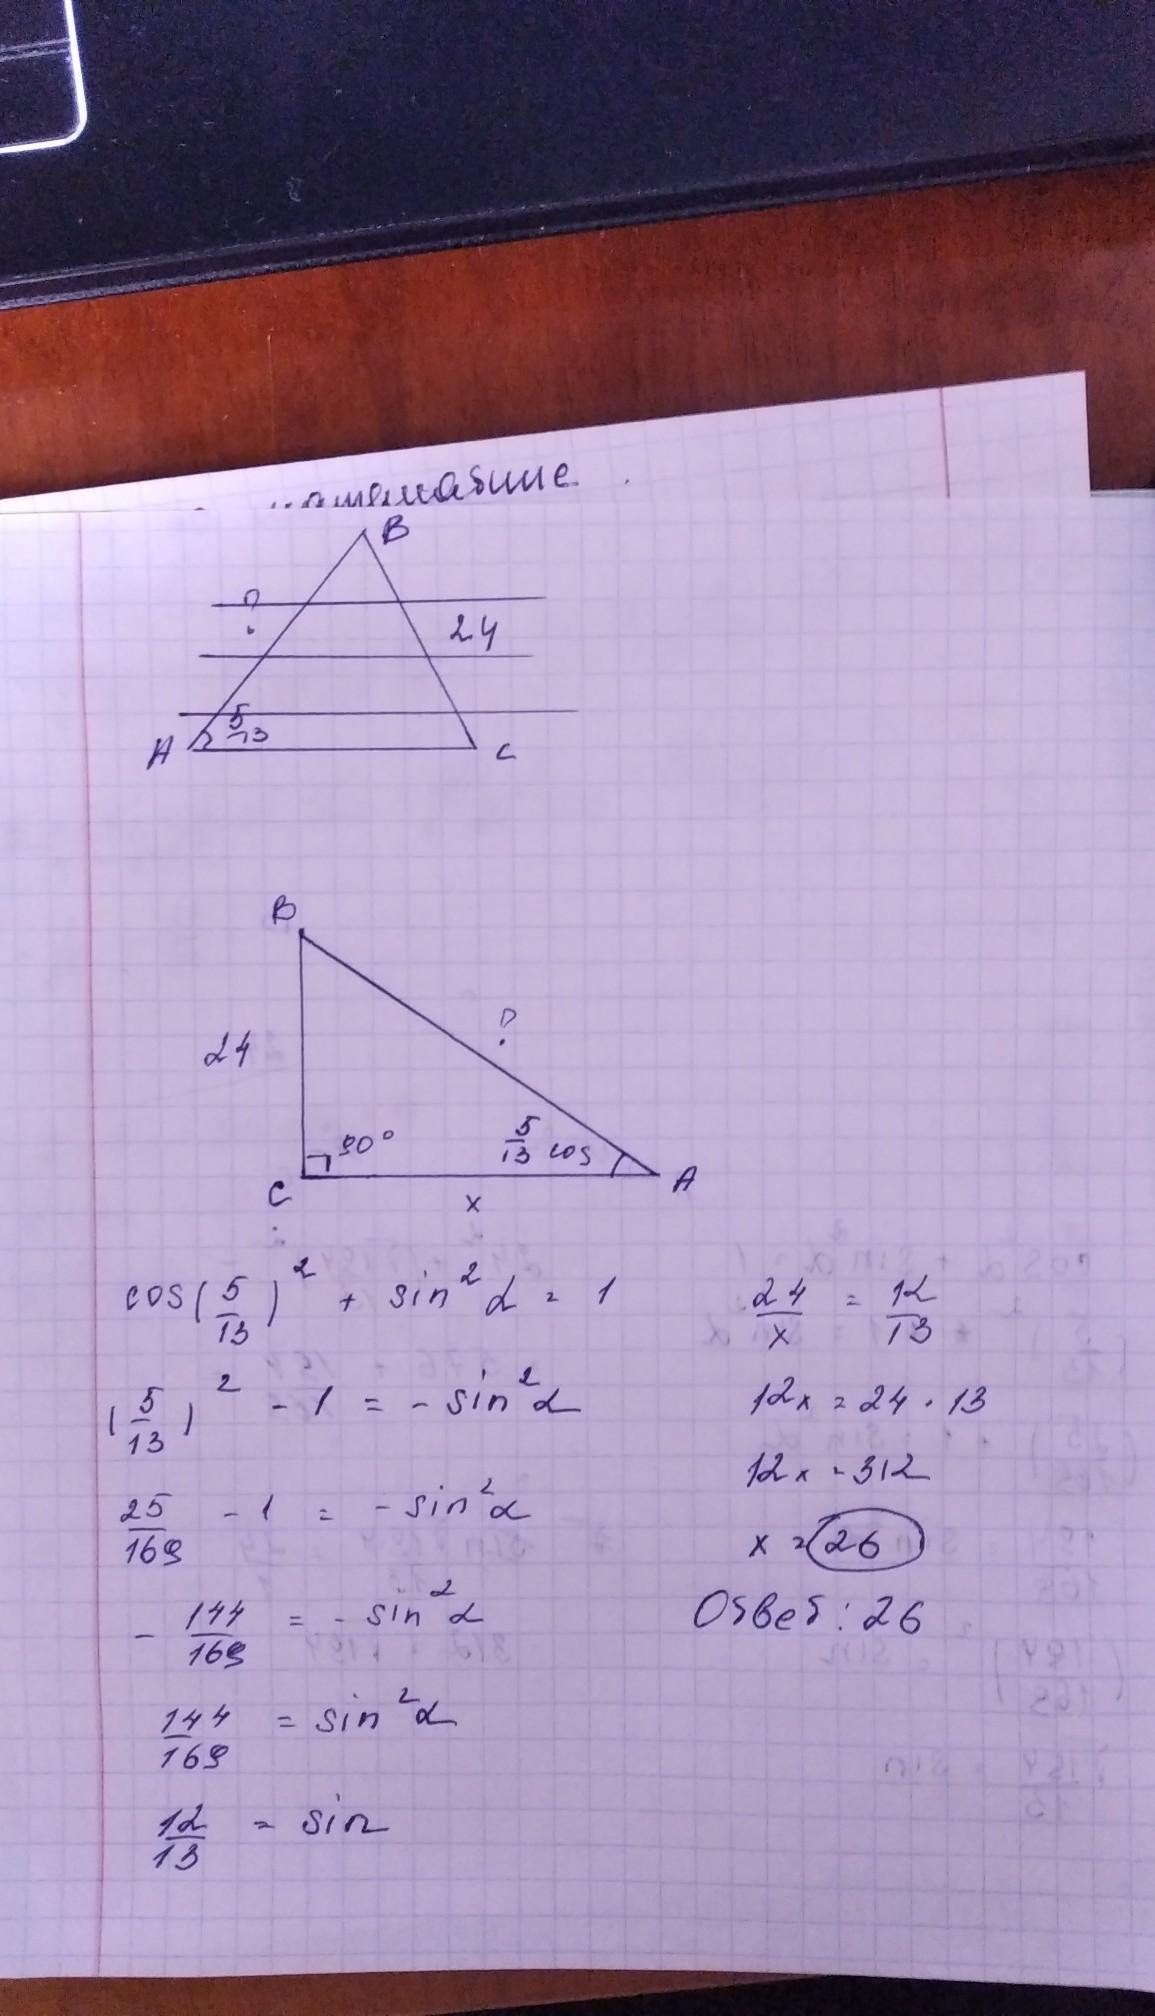 B
?
24
5/13
A
C
B
24
?
90°
5/13 cos
C
A
x
cos(5/13)² + sin²α = 1
(5/13)² - 1 = - sin²α
25/169 - 1 = - sin²α
- 144/169 = - sin²α
144/169 = sin²α
12/13 = sin
24/x = 12/13
12x = 24 · 13
12x = 312
x = 26
Ответ: 26